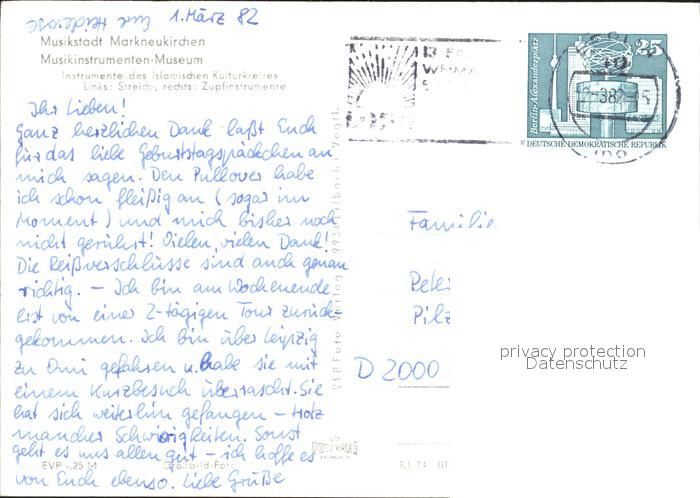 Eure Heiderose
1. März 82
Musikstadt Markneukirchen
Musikinstrumenten-Museum
Instrumente des Islamischen Kulturkreises
Links: Streich-, rechts: Zupfinstrumente
Ihr Lieben!
Ganz herzlichen Dank laßt Euch
für das liebe Geburtstagspäckchen von
mir sagen. Den Pullover habe
ich schon fleißig an (sogar im
Moment) und mich bisher noch
nicht gerührt! Vielen, vielen Dank!
Die Reißverschlüsse sind auch genau
richtig. – Ich bin am Wochenende
erst von einer 2-tägigen Tour zurück-
gekommen. Ich bin über Leipzig
zu Omi gefahren u. habe sie mit
einem Kurzbesuch überrascht. Sie
hat sich weiterhin gefangen – trotz
mancher Schwierigkeiten. Sonst
geht es uns allen gut – ich hoffe es
von Euch ebenso. Liebe Grüße
EVP -.25 M
Großbild-Foto
VEB Foto-Verlag
25
Berlin-Alexanderplatz
DEUTSCHE DEMOKRATISCHE REPUBLIK
Familie
Peter
Pilz
D 2000
privacy protection
Datenschutz